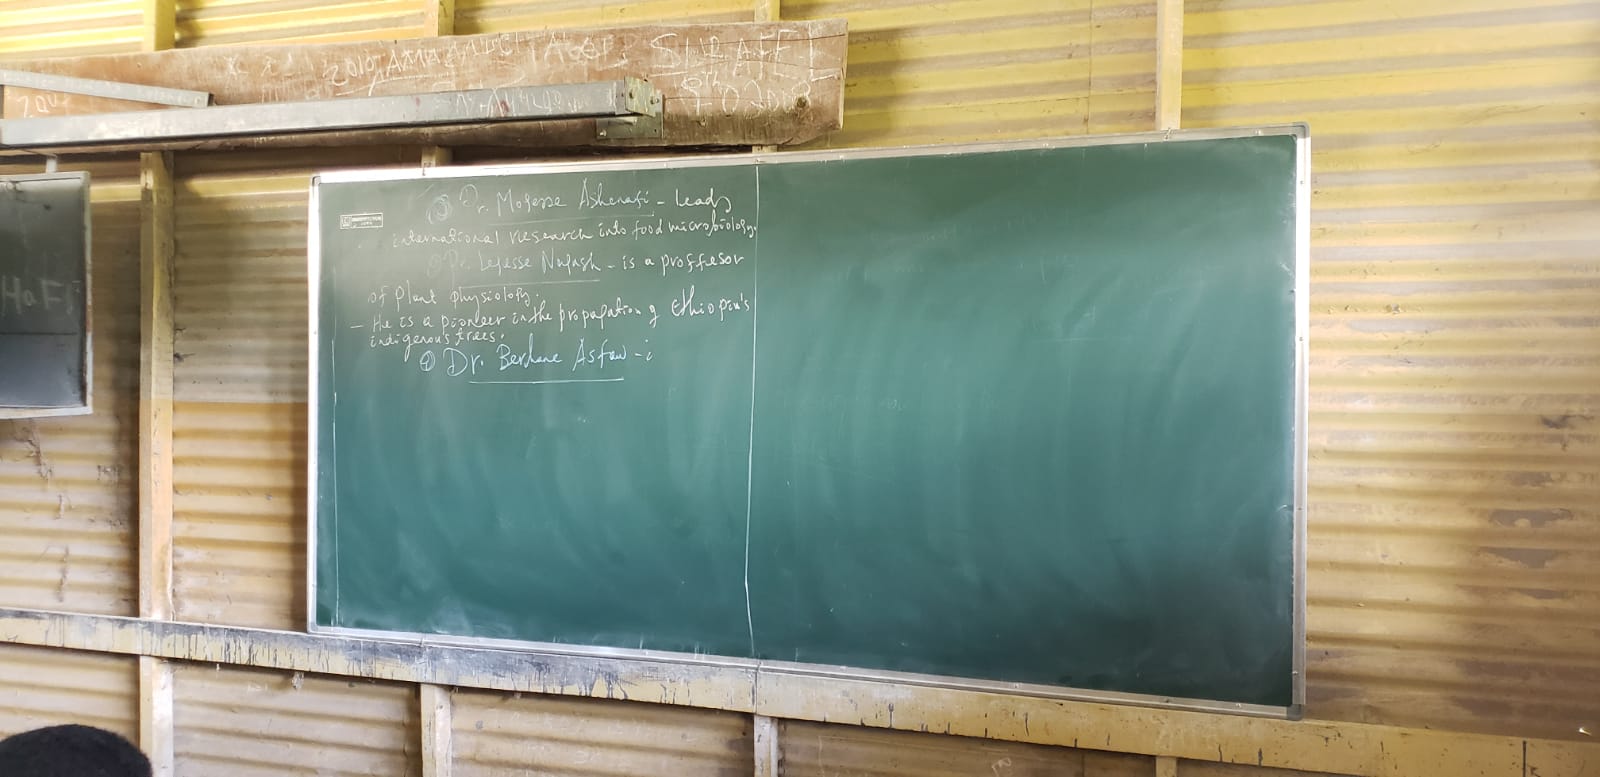 2010 AMANUEL
SURAFEL
2008
③ Dr. Mogesse Ashenafi - leads
international research into food microbiology.
Dr. Legesse Nagash - is a proffesor
of plant physiology.
- He is a pioneer in the propagation of Ethiopia's
indigenous trees.
④ Dr. Berhane Asfaw - i
HaFt